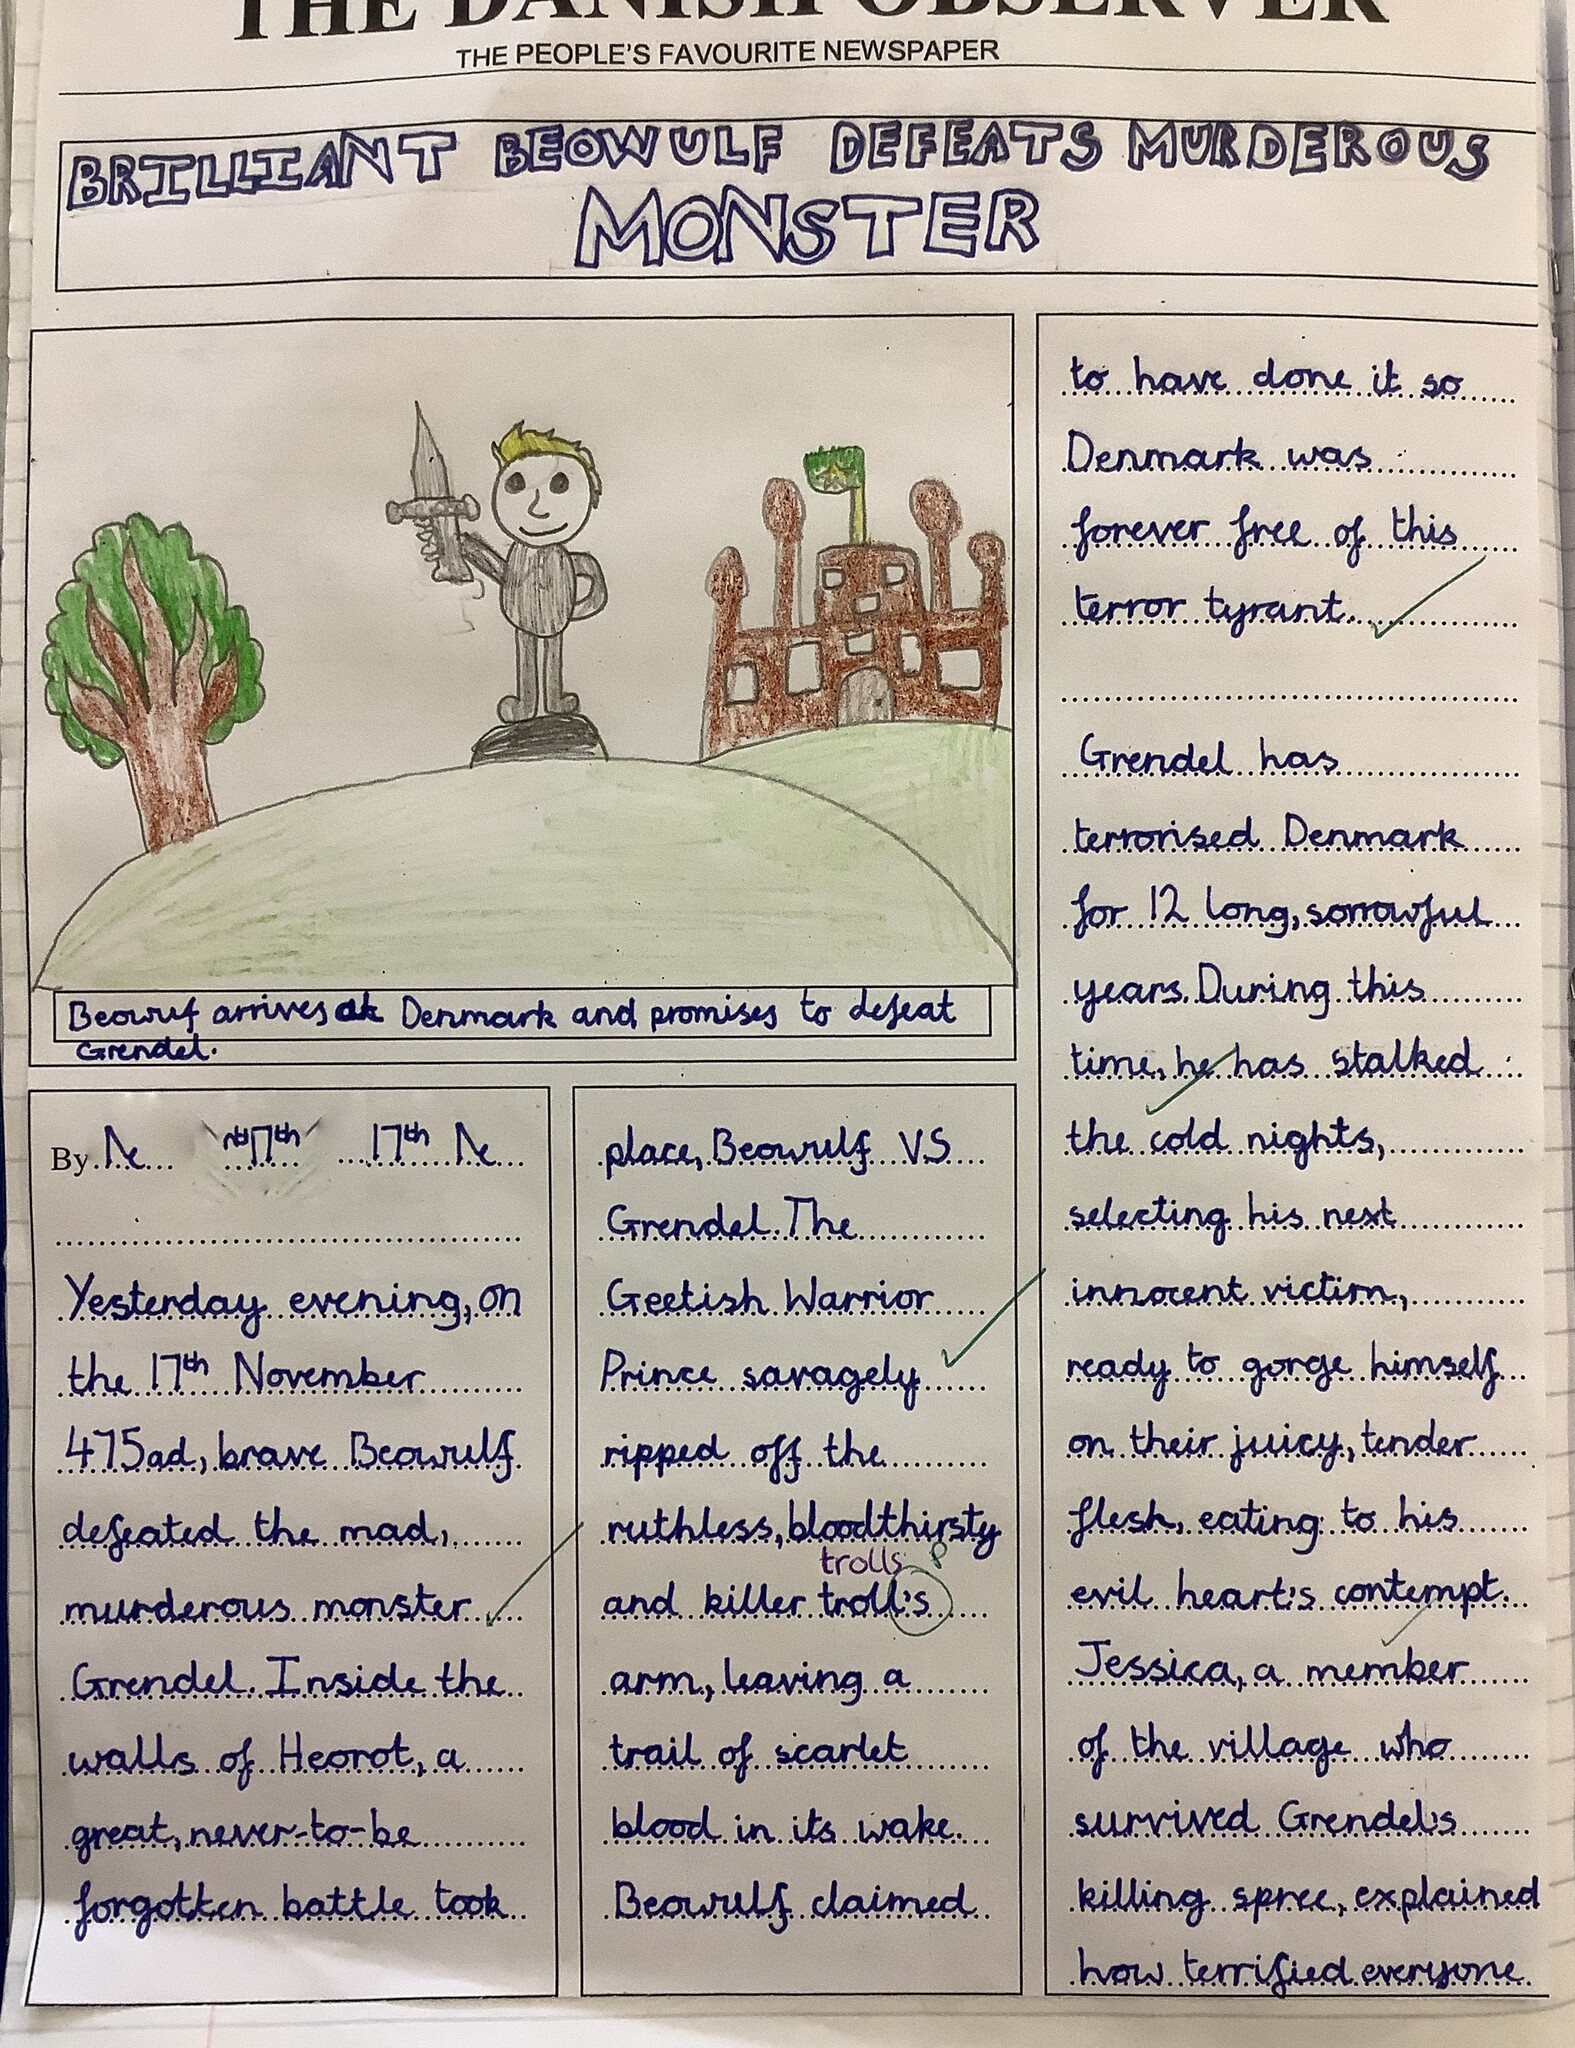 THE DANISH OBSERVER
THE PEOPLE'S FAVOURITE NEWSPAPER
BRILLIANT BEOWULF DEFEATS MURDEROUS
MONSTER
Beowulf arrives at Denmark and promises to defeat
Grendel.
By
17th
Yesterday evening, on
the 17th November
475ad, brave Beowulf
defeated the mad,
murderous monster
Grendel. Inside the
walls of Heorot, a
great, never-to-be
forgotten battle took
place, Beowulf VS
Grendel. The
Geetish Warrior
Prince savagely
ripped off the
ruthless, bloodthirsty
trolls P
and killer troll's
arm, leaving a
trail of scarlet
blood in its wake.
Beowulf claimed
to have done it so
Denmark was
forever free of this
terror tyrant.
Grendel has
terrorised Denmark
for 12 long, sorrowful
years. During this
time, he has stalked
the cold nights,
selecting his next
innocent victim,
ready to gorge himself
on their juicy, tender
flesh, eating to his
evil heart's contempt.
Jessica, a member
of the village who
survived Grendel's
killing spree, explained
how terrified everyone